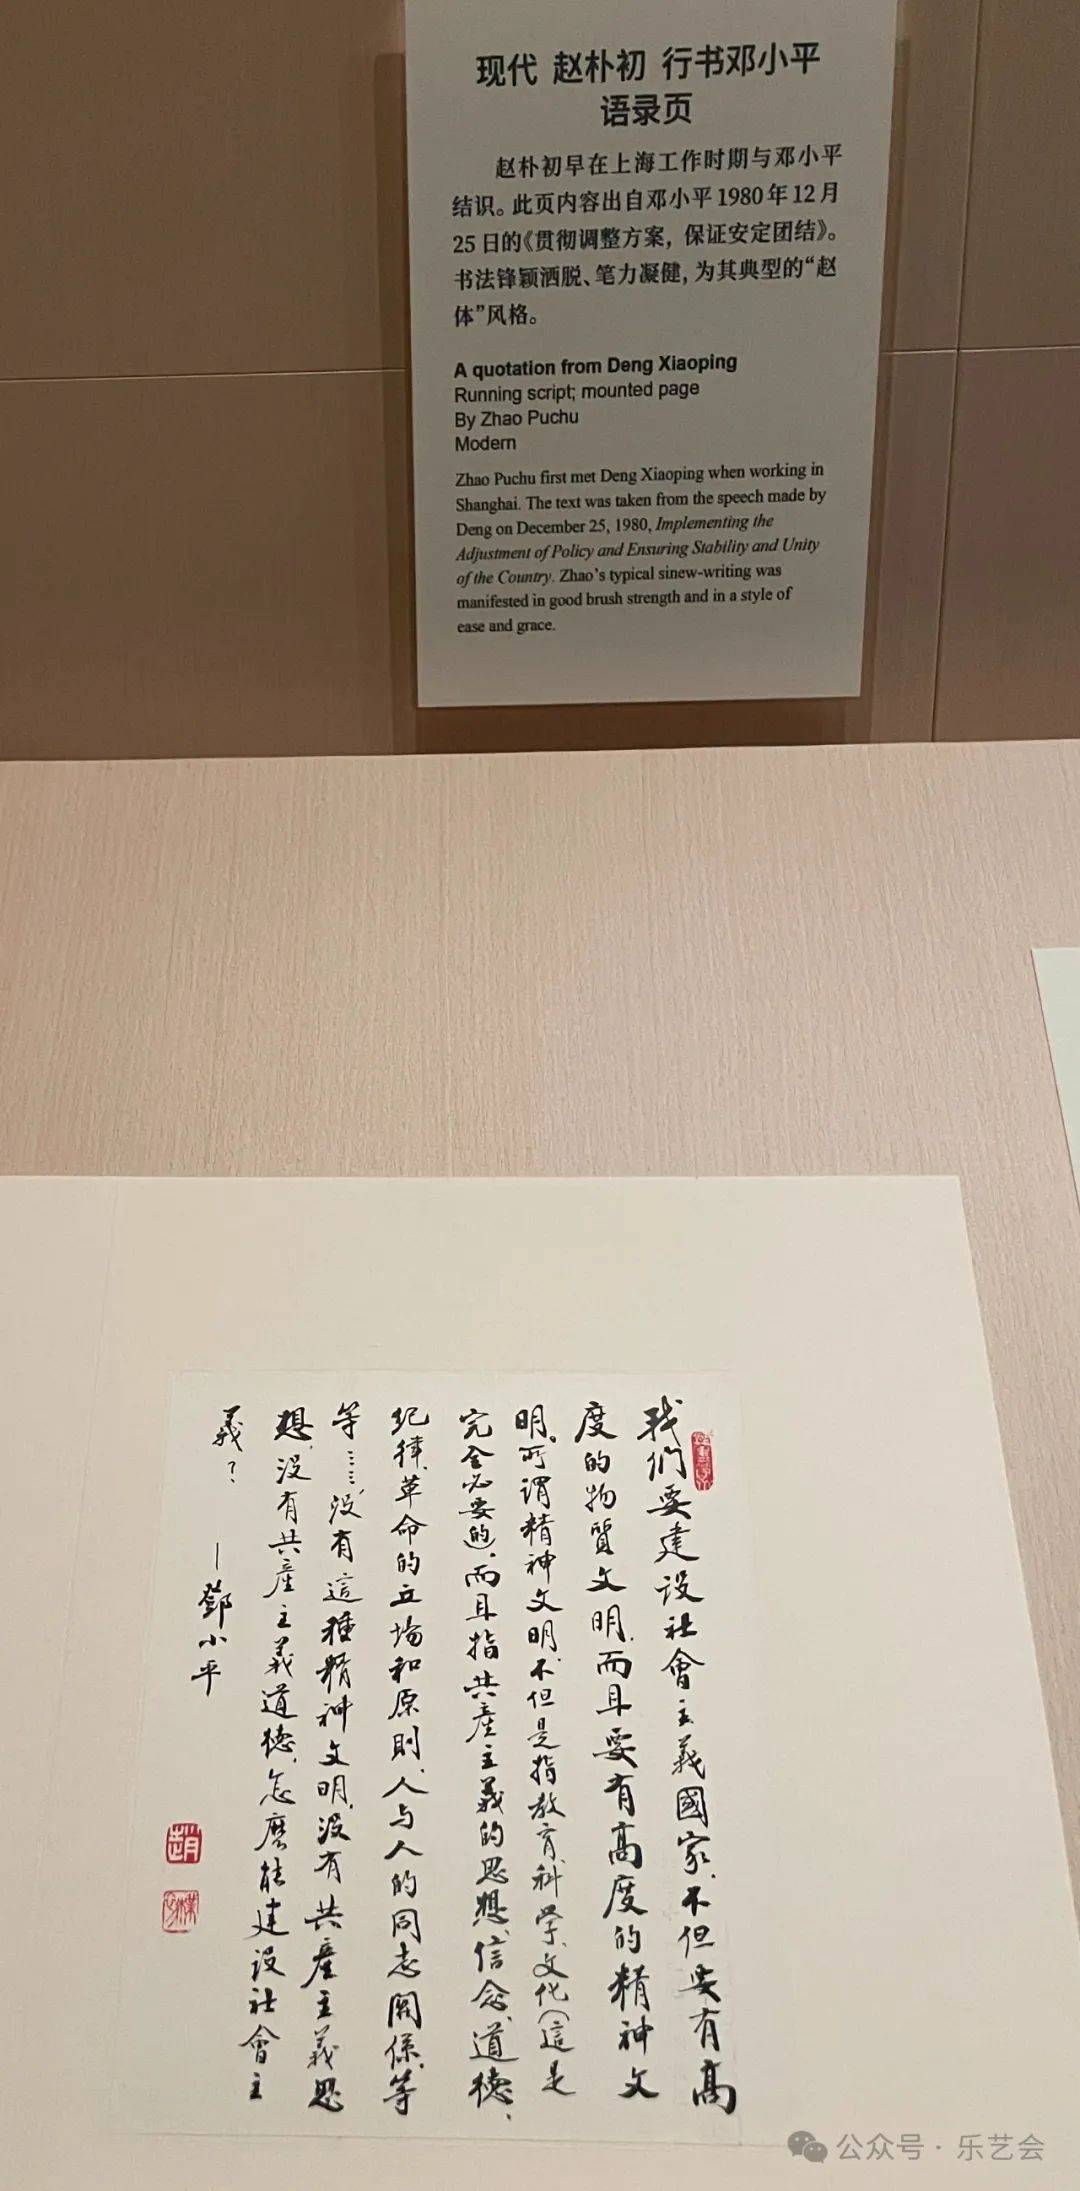 现代 赵朴初 行书邓小平
语录页
赵朴初早在上海工作时期与邓小平
结识。此页内容出自邓小平1980年12月
25日的《贯彻调整方案，保证安定团结》。
书法锋颖洒脱、笔力凝健，为其典型的“赵
体”风格。
A quotation from Deng Xiaoping
Running script; mounted page
By Zhao Puchu
Modern
Zhao Puchu first met Deng Xiaoping when working in
Shanghai. The text was taken from the speech made by
Deng on December 25, 1980, Implementing the
Adjustment of Policy and Ensuring Stability and Unity
of the Country. Zhao’s typical sinew-writing was
manifested in good brush strength and in a style of
ease and grace.
我们要建设社會主義國家，不但要有高
度的物質文明，而且要有高度的精神文
明。所谓精神文明，不但是指教育、科学、文化（這是
完全必要的），而且指共產主義的思想、信念、道德、
紀律，革命的立場和原則，人与人的同志關係，等
等……没有這種精神文明，没有共產主義思
想，没有共產主義道德，怎麽能建设社會主
義？
—鄧小平
趙
樸初
公众号·乐艺会